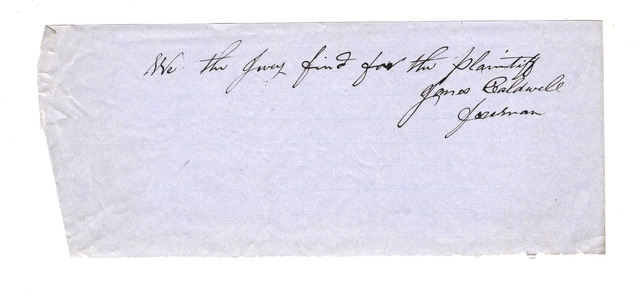 We the Jury find for the Plaintiff
James Caldwell
foreman